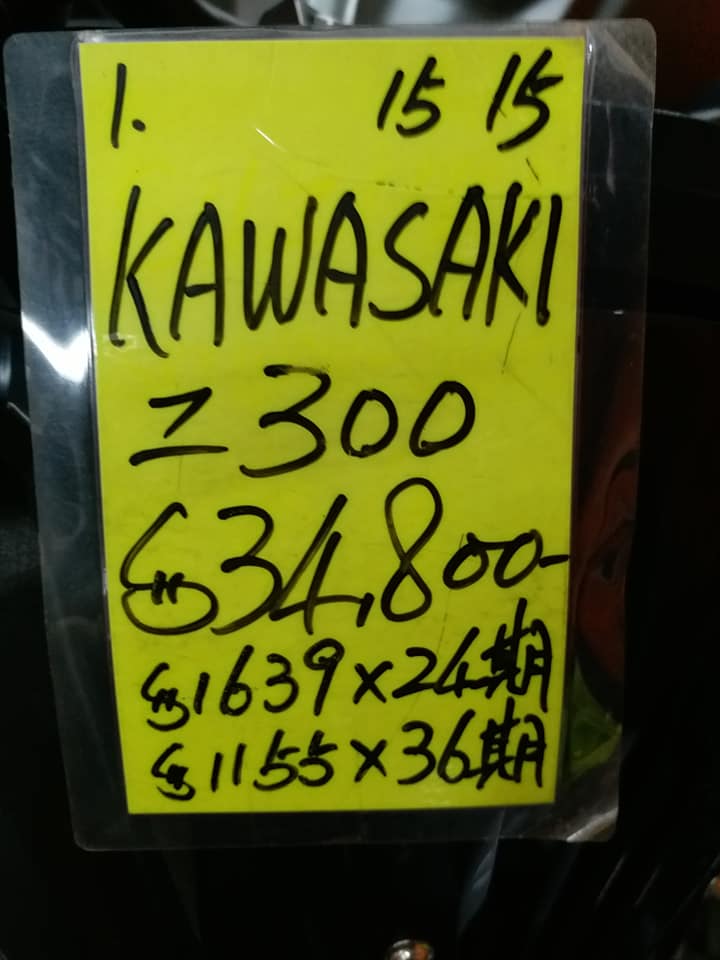 1. 15 15
KAWASAKI
Z300
$34,800-
$1639x24期
$1155x36期